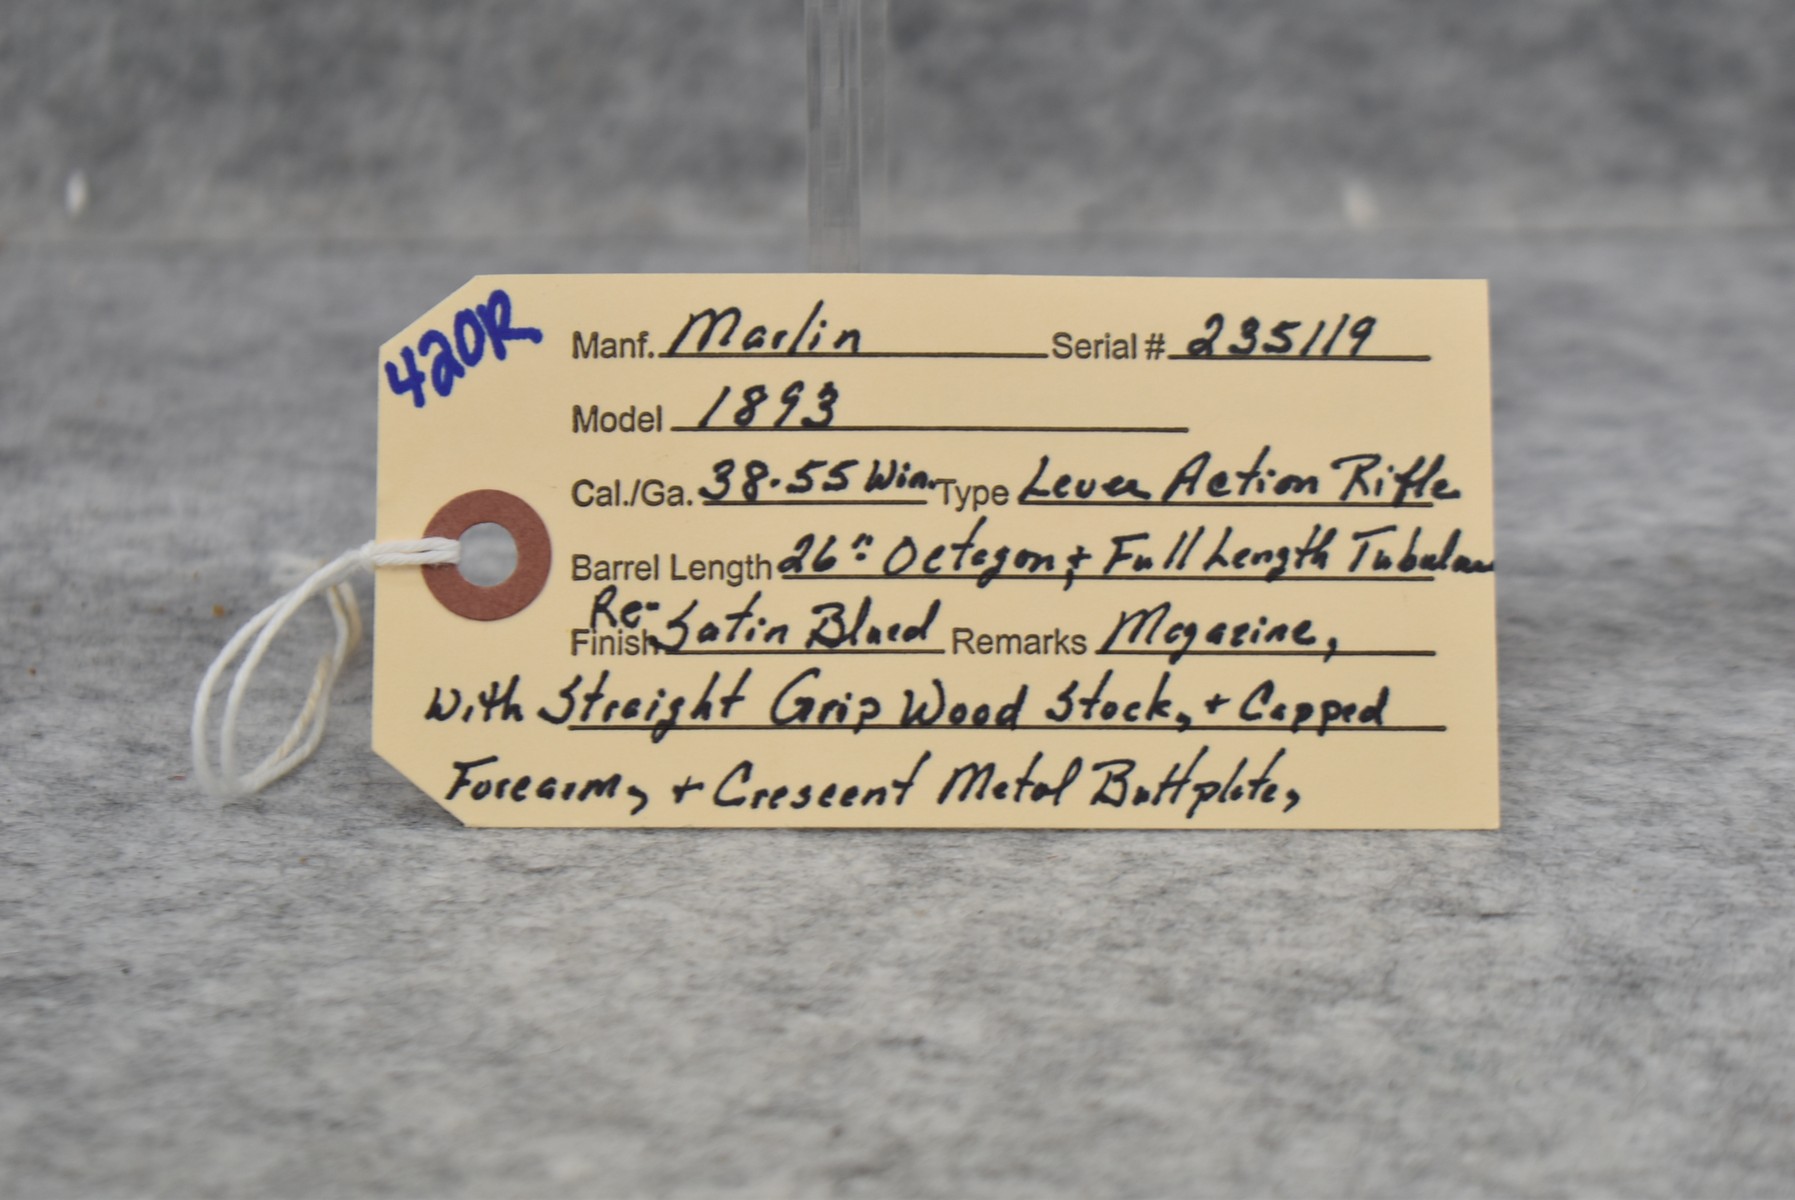 420R
Manf. Marlin Serial # 235119
Model 1893
Cal./Ga. 38.55 Win. Type Lever Action Rifle
Barrel Length 26" Octagon, + Full Length Tubular
Re-
Finish Satin Blued Remarks Magazine,
With Straight Grip Wood Stock, + Capped
Forearm, + Crescent Metal Buttplate,